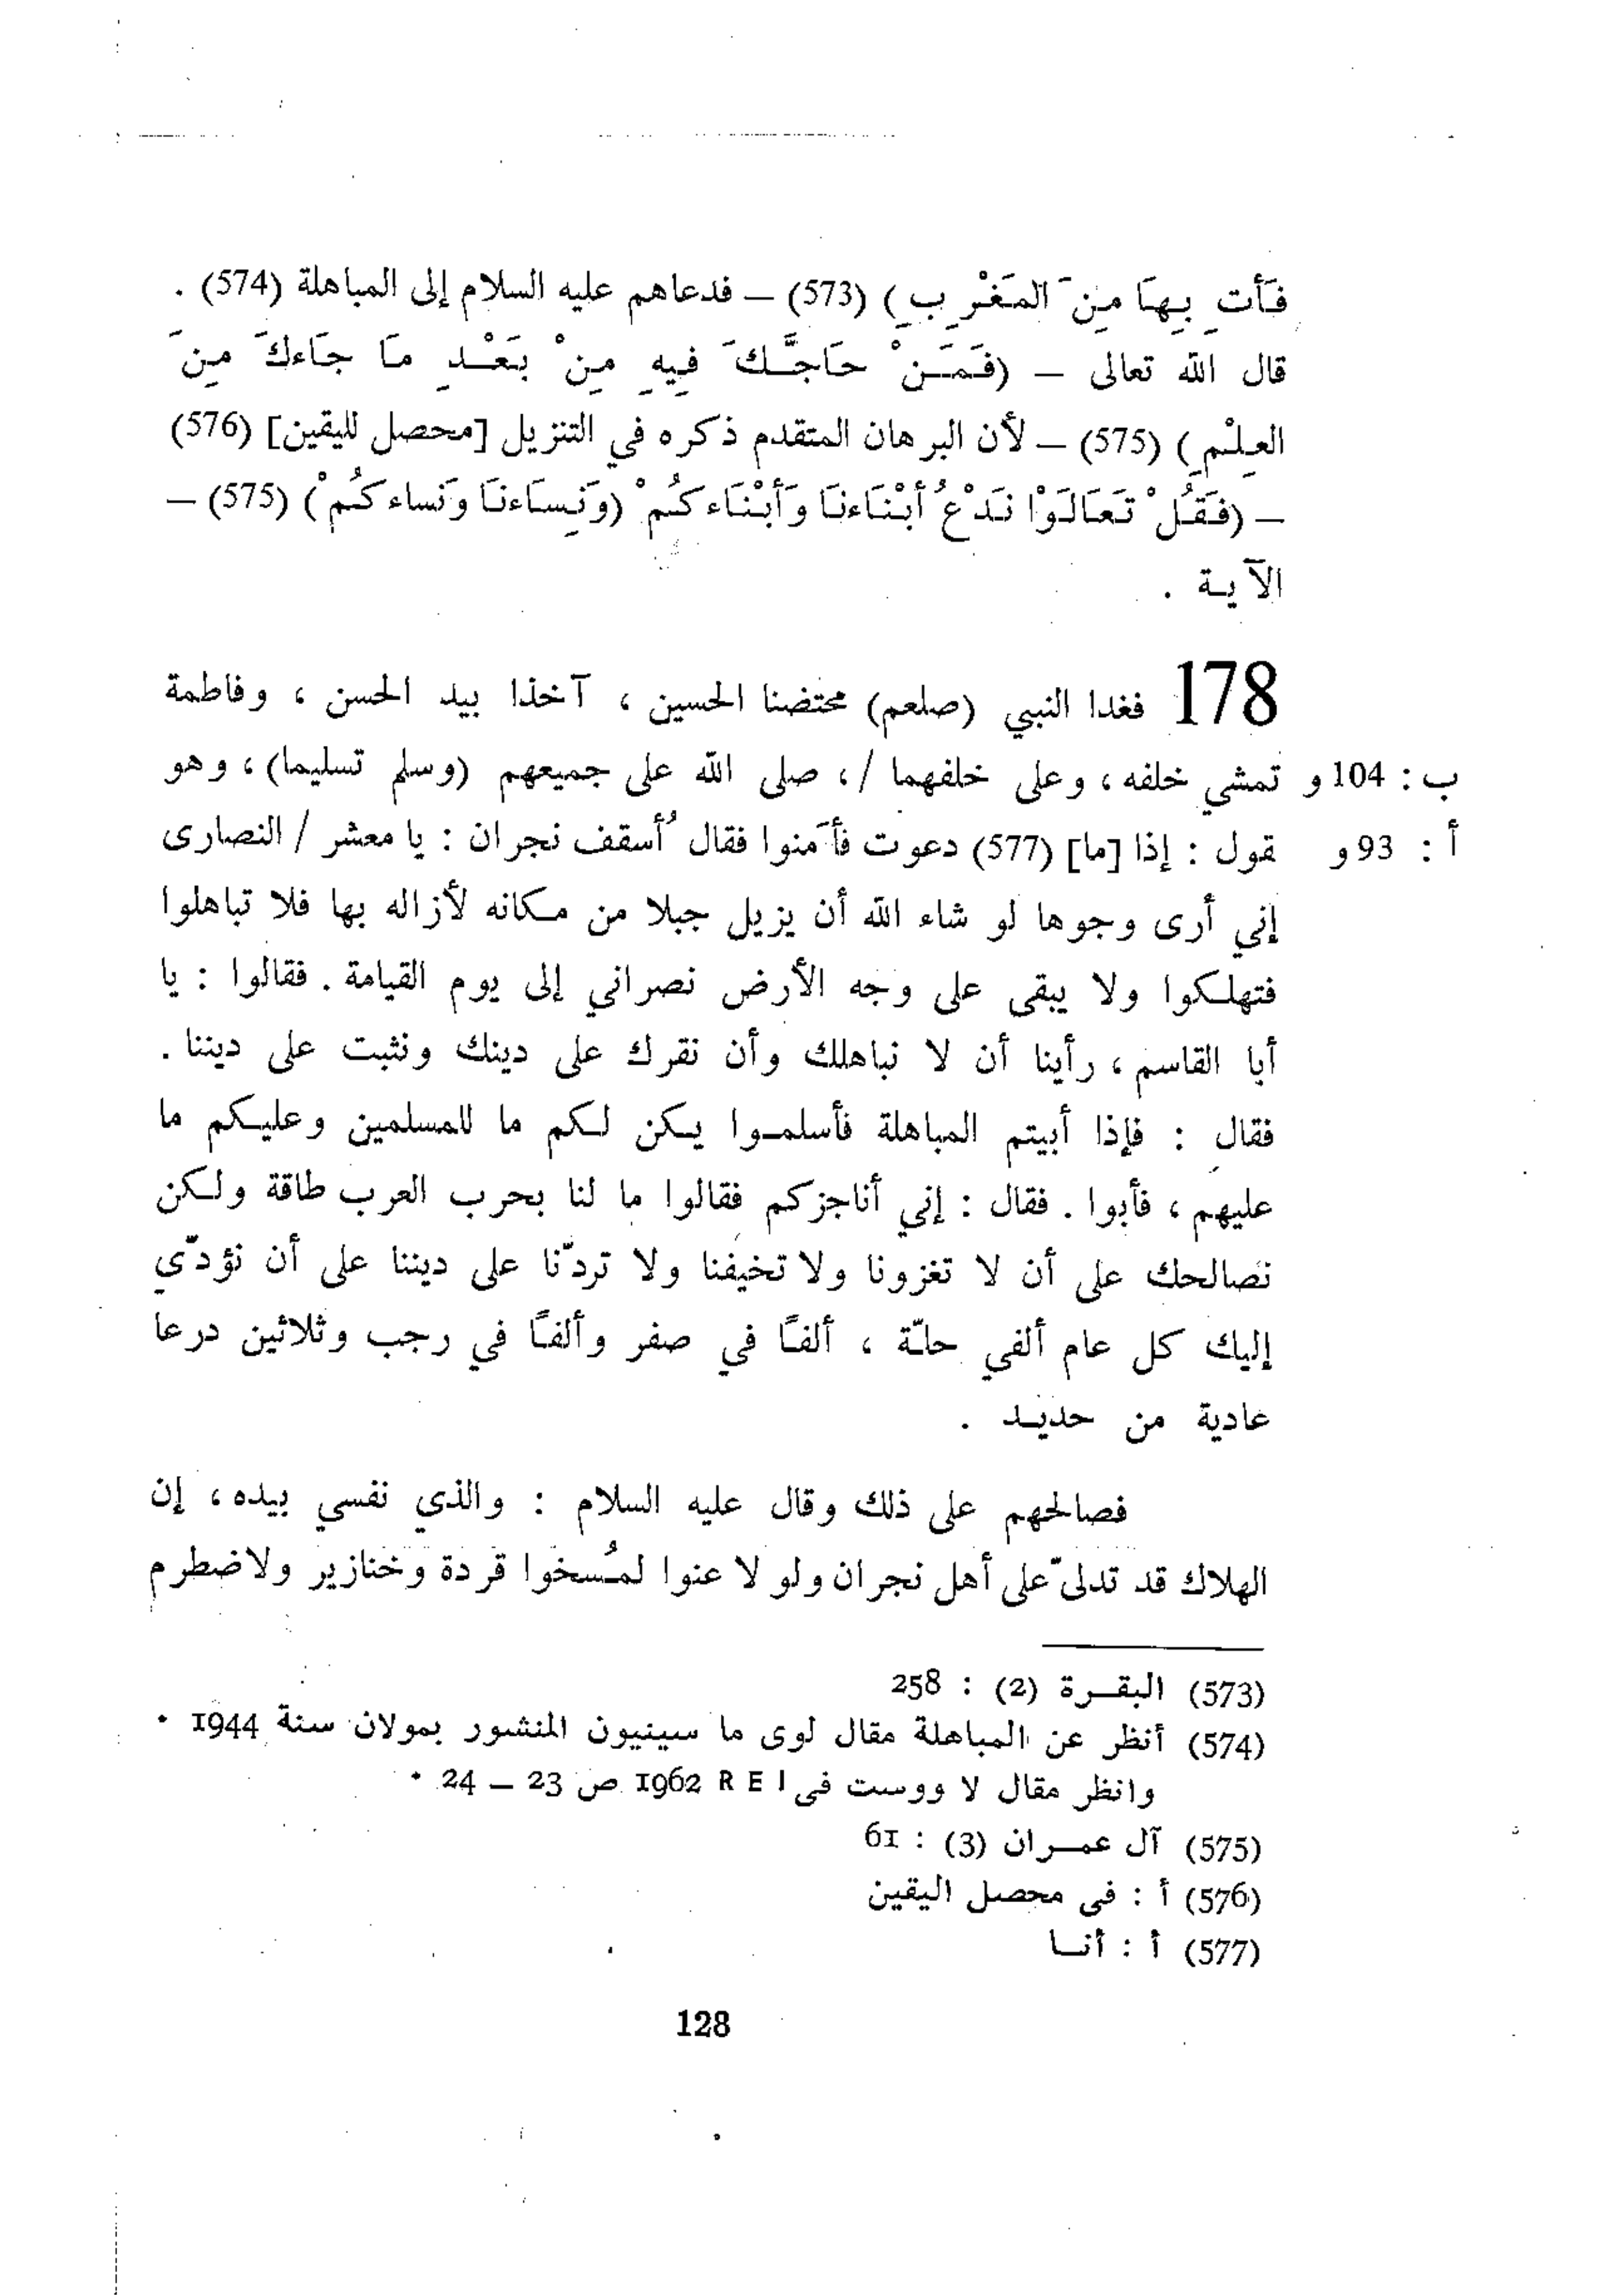 فَأْتِ بِهَا مِنَ المَغْرِبِ) (573) — فدعاهم عليه السلام إلى المباهلة (574) .
قال الله تعالى — (فَمَنْ حَاجَّكَ فِيهِ مِنْ بَعْدِ مَا جَاءكَ مِنَ
العِلْمِ) (575) — لأن البرهان المتقدم ذكره في التنزيل [محصل لليقين] (576)
— (فَقُلْ تَعَالَوْا نَدْعُ أبْنَاءنَا وَأبْنَاءكُمْ (وَنِسَاءنَا وَنساءكُمْ) (575) —
الآية .
178 فغدا النبي (صلعم) محتضنا الحسين ، آخذا بيد الحسن ، وفاطمة
ب : 104 و تمشي خلفه ، وعلى خلفهما / ، صلى الله على جميعهم (وسلم تسليما) ، وهو
أ : 93 و قول : إذا [ما] (577) دعوت فأَمنوا فقال أُسقف نجران : يا معشر / النصارى
إني أرى وجوها لو شاء الله أن يزيل جبلا من مكانه لأزاله بها فلا تباهلوا
فتهلكوا ولا يبقى على وجه الأرض نصراني إلى يوم القيامة . فقالوا : يا
أبا القاسم ، رأينا أن لا نباهلك وأن نقرك على دينك ونثبت على ديننا .
فقال : فإذا أبيتم المباهلة فأسلموا يكن لكم ما للمسلمين وعليكم ما
عليهم ، فأبوا . فقال : إني أناجزكم فقالوا ما لنا بحرب العرب طاقة ولكن
نصالحك على أن لا تغزونا ولا تخيفنا ولا تردّنا على ديننا على أن نؤدّي
إليك كل عام ألفي حلّة ، ألفًا في صفر وألفًا في رجب وثلاثين درعا
عادية من حديد .
فصالحهم على ذلك وقال عليه السلام : والذي نفسي بيده ، إن
الهلاك قد تدلىّ على أهل نجران ولو لا عنوا لمُسخوا قردة وخنازير ولاضطرم
(573) البقرة (2) : 258
(574) أنظر عن المباهلة مقال لوى ما سينيون المنشور بمولان سنة 1944 .
وانظر مقال لا ووست فى R E I 1962 ص 23 — 24 .
(575) آل عمران (3) : 61
(576) أ : فى محصل اليقين
(577) أ : أنا
128